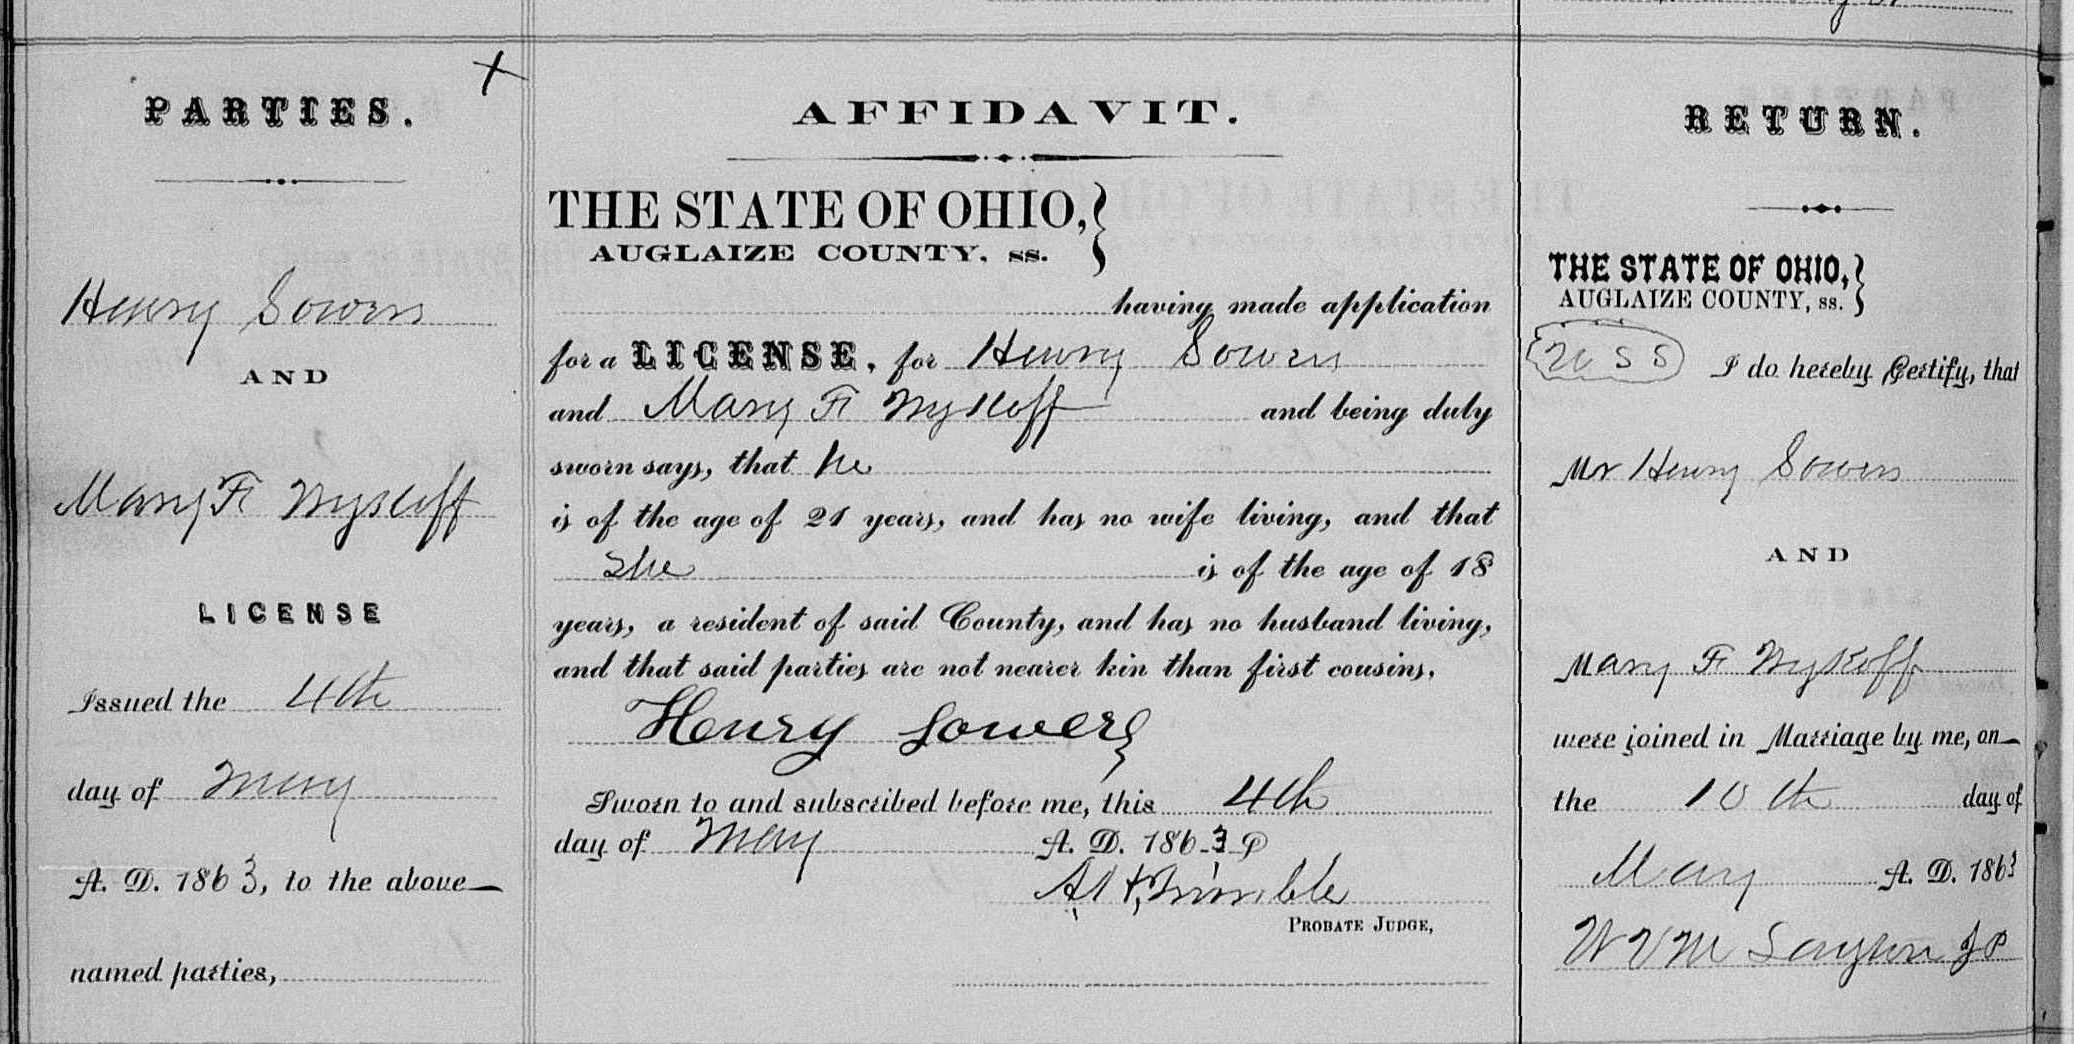 PARTIES.
Henry Sowers
AND
Mary F Wykoff
LICENSE
Issued the 4th
day of May
A. D. 1863, to the above
named parties,
AFFIDAVIT.
THE STATE OF OHIO,
AUGLAIZE COUNTY, ss.
having made application
for a LICENSE, for Henry Sowers
and Mary F Wykoff and being duly
sworn says, that he
is of the age of 21 years, and has no wife living, and that
she is of the age of 18
years, a resident of said County, and has no husband living,
and that said parties are not nearer kin than first cousins.
Henry Sowers
Sworn to and subscribed before me, this 4th
day of May A. D. 1863
Trimble
PROBATE JUDGE,
RETURN.
THE STATE OF OHIO,
AUGLAIZE COUNTY, ss.
I do hereby Certify, that
Mr Henry Sowers
AND
Mary F Wykoff
were joined in Marriage by me, on
the 10th day of
May A. D. 1863
W V M Layton J P